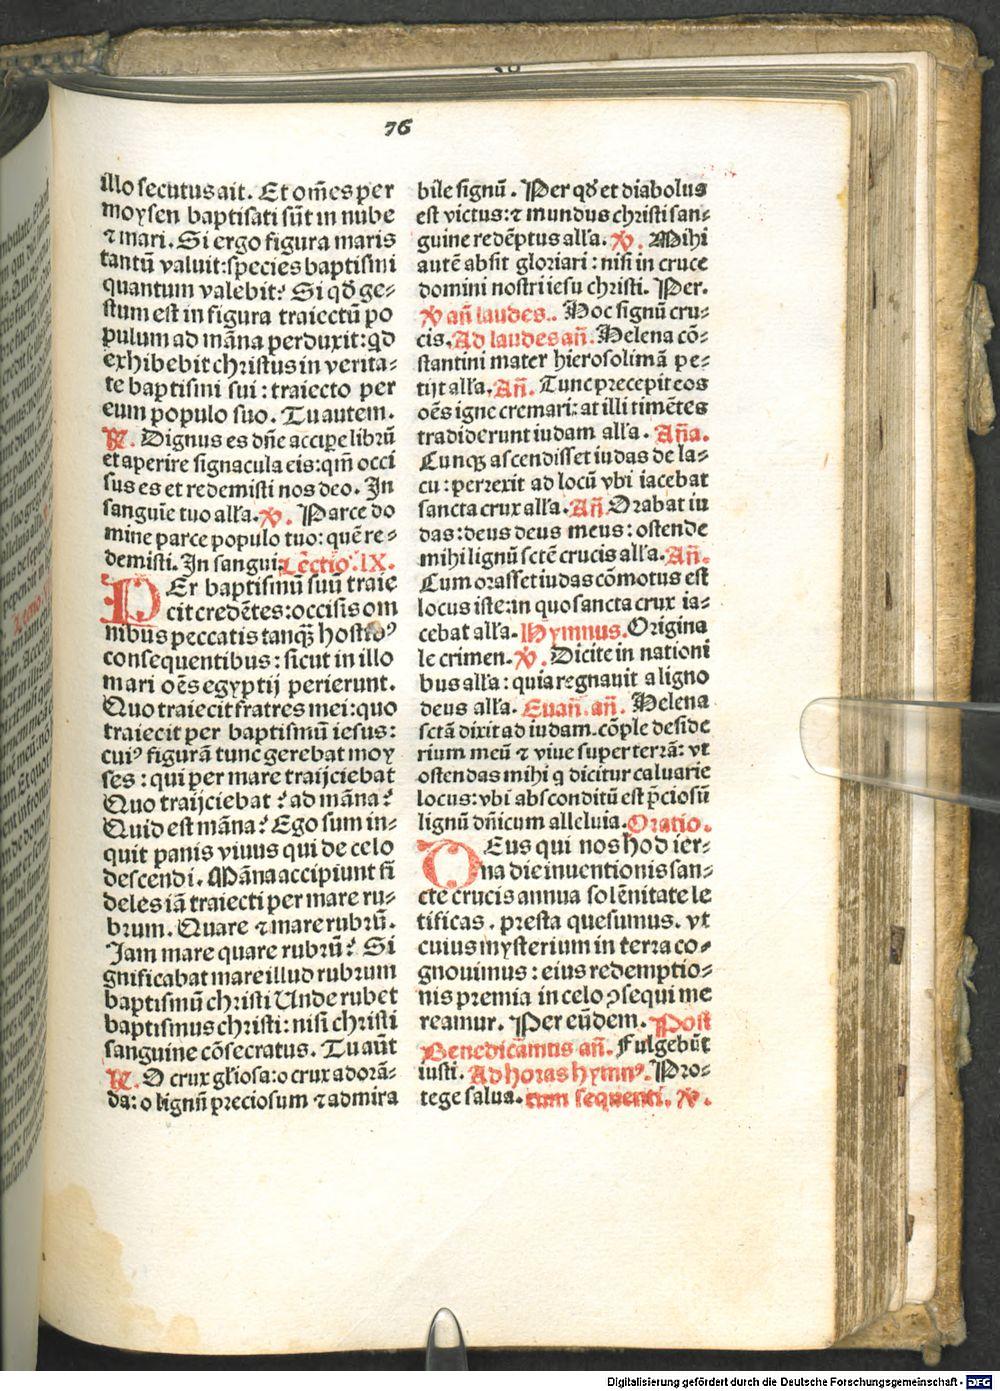 76
illo secutus ait. Et om̄es per
moysen baptisati sūt in nube
⁊ mari. Si ergo figura maris
tantū valuit: species baptismi
quantum valebit? Si qđ ge⸗
stum est in figura traiectū po
pulum ad māna perduxit: qđ
exhibebit christus in verita⸗
te baptismi sui: traiecto per
eum populo suo. Tu autem.
℟. Dignus es dn̄e accipe librū
et aperire signacula eis: qm̄ occi
sus es et redemisti nos deo. In
sanguīe tuo alľa. ℣. Parce do
mine parce populo tuo: quē re⸗
demisti. In sangui. Lectio. IX.
PEr baptismū suū traie
cit credētes: occisis om
nibus peccatis tanqꝫ hostibꝰ
consequentibus: sicut in illo
mari oēs egyptij perierunt.
Quo traiecit fratres mei: quo
traiecit per baptismū iesus:
cuiꝰ figurā tunc gerebat moy
ses: qui per mare traijciebat
Quo traijciebat? ad māna?
Quid est māna? Ego sum in⸗
quit panis viuus qui de celo
descendi. Māna accipiunt fi
deles iā traiecti per mare ru⸗
brum. Quare ⁊ mare rubrū.
Jam mare quare rubrū? Si
gnificabat mare illud rubrum
baptismū christi Unde rubet
baptismus christi: nisi christi
sanguine cōsecratus. Tu aūt
℟. O crux gľiosa: o crux adorā⸗
da: o lignū preciosum ⁊ admira
bile signū. Per qđ et diabolus
est victus: ⁊ mundus christi san⸗
guine redēptus alľa. ℣. Mihi
autē absit gloriari: nisi in cruce
domini nostri iesu christi. Per.
℣ an̄ laudes. Hoc signū cru⸗
cis. Ad laudes an̄. Helena cō⸗
stantini mater hierosolimā pe⸗
tijt alľa. An̄. Tunc precepit eos
oēs igne cremari: at illi timētes
tradiderunt iudam alľa. An̄a.
Cunqꝫ ascendisset iudas de la⸗
cu: perrexit ad locū vbi iacebat
sancta crux alľa. An̄ Orabat iu
das: deus deus meus: ostende
mihi lignū sctē crucis alľa. An̄.
Cum orasset iudas cōmotus est
locus iste: in quo sancta crux ia⸗
cebat alľa. Hymnus. Origina
le crimen. ℣. Dicite in nationi
bus alľa: quia regnauit a ligno
deus alľa. Euan̄. an̄. Helena
sctā dixit ad iudam. cōple deside
rium meū ⁊ viue super terrā: vt
ostendas mihi q dicitur caluarie
locus: vbi absconditū est p̄ciosū
lignū dn̄icum alleluia. Oratio.
DEus qui nos hodier⸗
na die inuentionis san⸗
cte crucis annua solēnitate le
tificas. presta quesumus. vt
cuius mysterium in terra co⸗
gnouimus: eius redemptio⸗
nis premia in celo ꝯsequi me
reamur. Per eūdem. Post
Benedicāmus an̄. Fulgebūt
iusti. Ad horas hymnꝰ. Pro⸗
tege salua. cum sequenti. ℣.
Digitalisierung gefördert durch die Deutsche Forschungsgemeinschaft - DFG